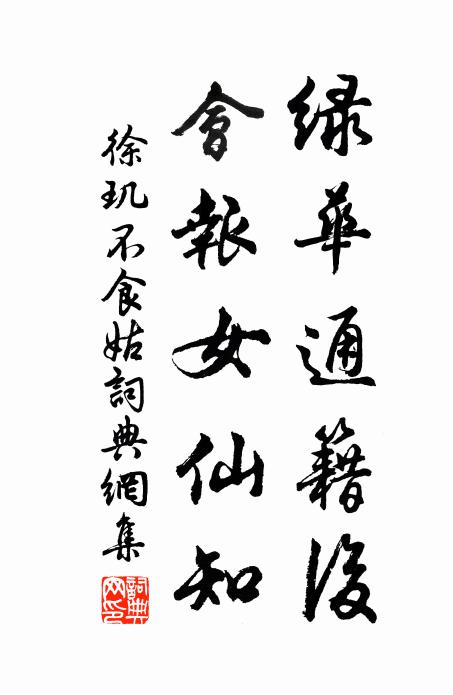 緑華通籍後
會報女仙知
徐璣不食姑詞典網集
詞典网印